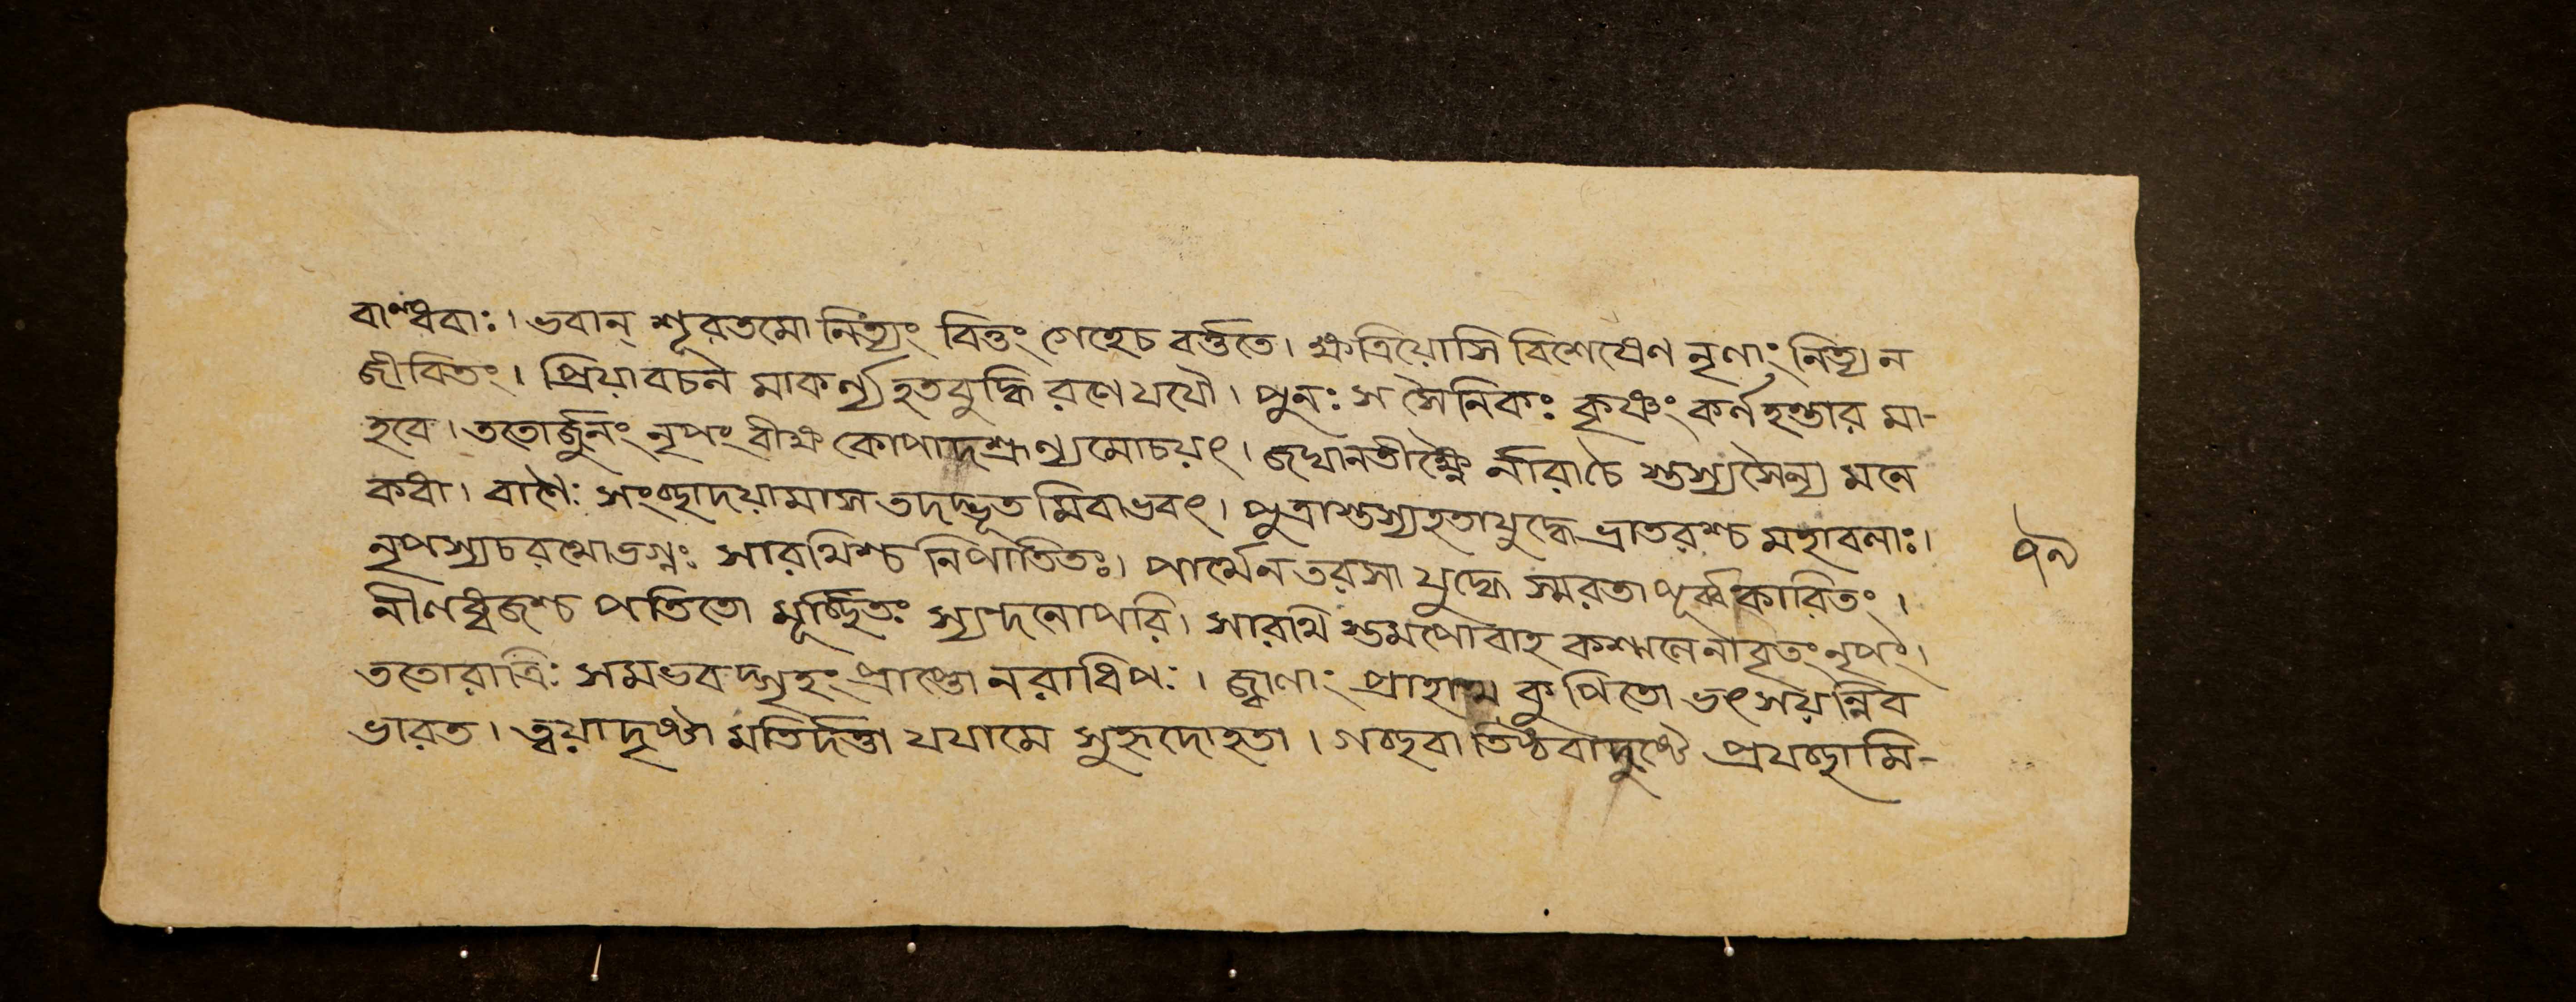 বান্ধবাঃ। ভবান্ শূরতমো নিত্যং বিত্তং গেহেচ বর্ত্ততে। ক্ষত্রিয়োসি বিশেষেণ নৃণাং নিত্য ন
জীবিতং। প্রিয়াবচন মাকর্ন্য হতবুদ্ধি রণে যযৌ। পুনঃ স সৈনিকঃ কৃষ্ণং কর্ন হন্তার মা-
হবে। ততোর্জুনং নৃপং বীক্ষ কোপাদশ্রূন্যমোচয়ৎ। জঘানতীক্ষ্ণৈ র্নারাচৈ স্তস্যসৈন্য মনে
কধা। বাণৈঃ সংচ্ছাদয়ামাস তদদ্ভূত মিবাভবৎ। পুত্রাস্তস্যহতাযুদ্ধে ভ্রাতরশ্চ মহাবলাঃ।
নৃপস্যচরথোভগ্নঃ সারথিশ্চ নিপাতিতঃ। পার্থেন তরসা যুদ্ধে স্মরতা পূর্ব্বকারিতং।
নীলধ্বজশ্চ পতিতো মূর্চ্ছিতঃ স্যন্দনোপরি। সারথি স্তমপোবাহ কশ্মলেনাবৃতং নৃপং।
ততোরাত্রিঃ সমভবদ্গৃহং প্রাপ্তো নরাধিপঃ। জ্বালাং প্রাহাথ কুপিতো ভৎসয়ন্নিব
ভারত। ত্বয়াদৃষ্টা মতির্দত্তা যযামে সুহৃদোহতা। গচ্ছবা তিষ্ঠবাদুষ্টে প্রযচ্ছামি-
৭৯